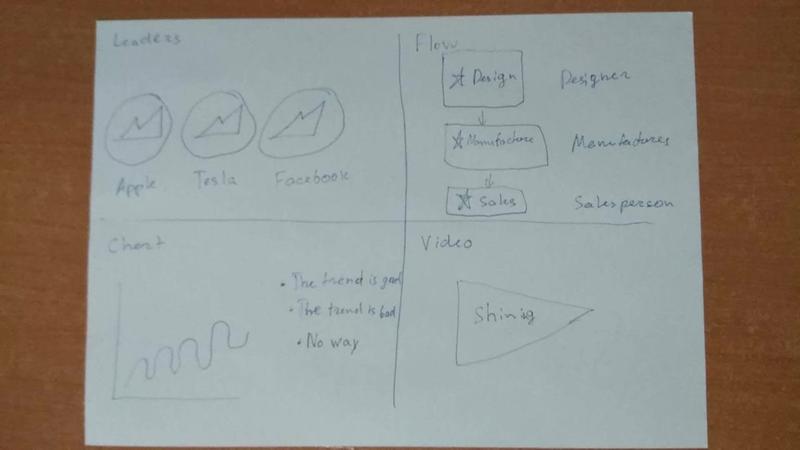 Leaders
Apple Tesla Facebook
Flow
Design Designer
Manufacture Manufactures
Sales Salesperson
Chart
The trend is good
The trend is bad
No way
Video
Shinig